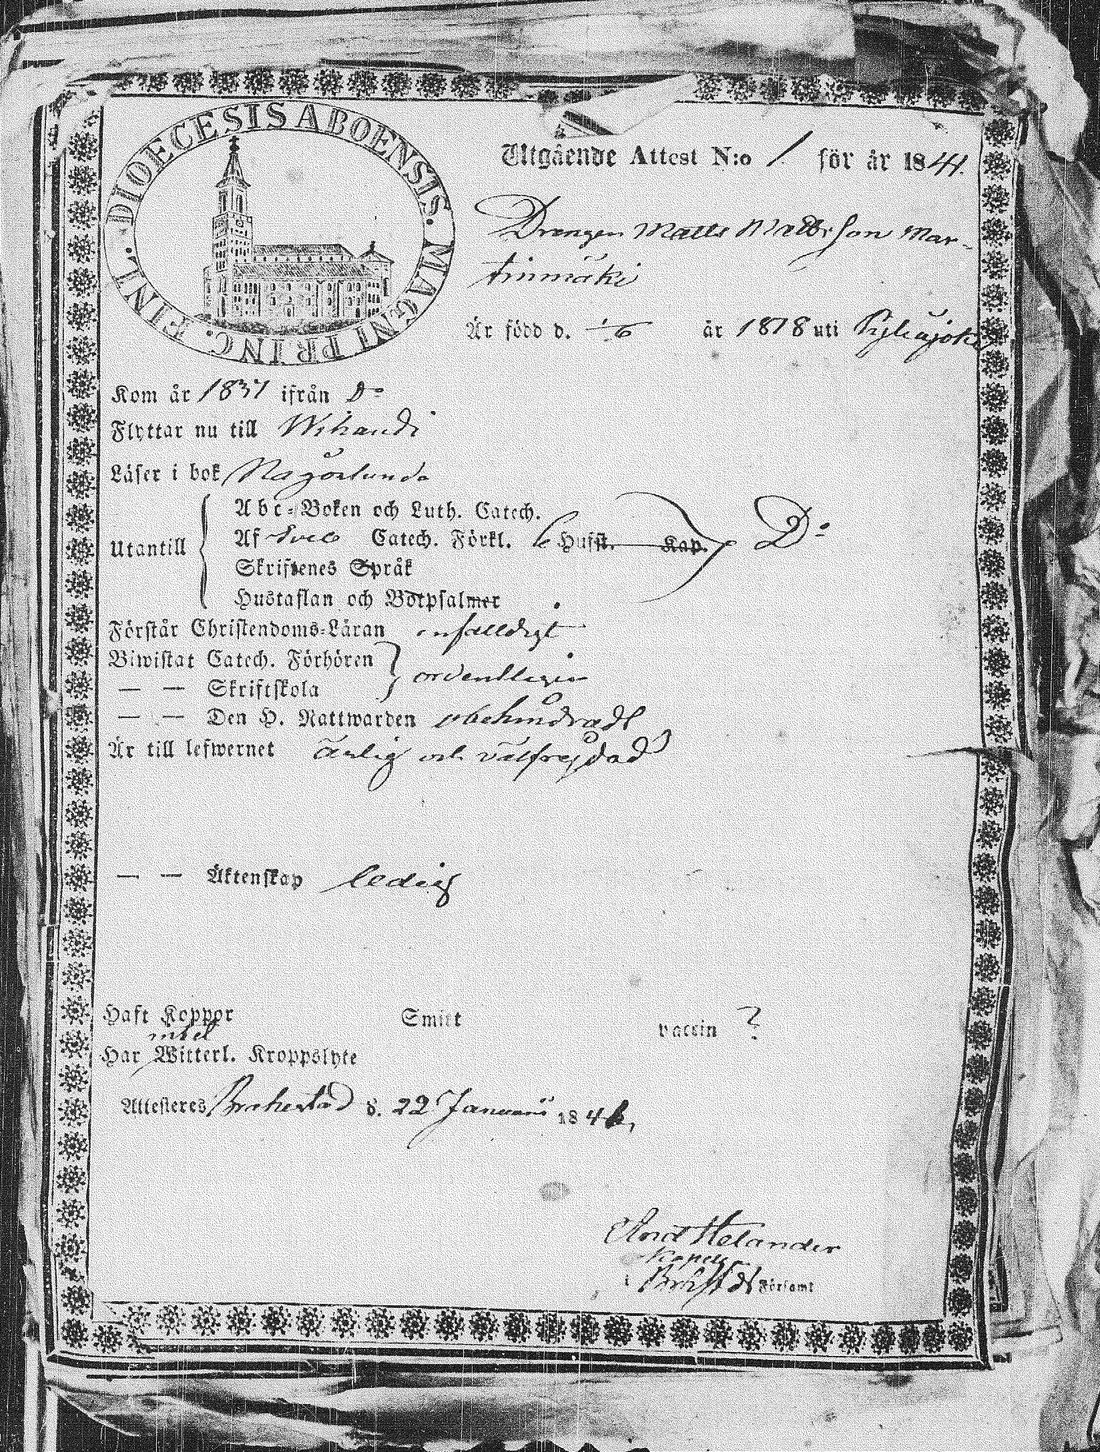 DIOECESIS ABOENSIS. MAGNI PRINC. FINL.
Utgående Attest N:o 1 för år 1841.
Drengen Matts Mattsson Mar-
tinmäki
Är född d. 1/6 år 1818 uti Pyhäjoki
Kom år 1837 ifrån Do
Flyttar nu till Wihandi
Läser i bok Någorlunda
Abc-Boken och Luth. Catech.
Utantill Af Catech. Förkl. Husst. Kap. Do
Skriftenes Språk
Hustaflan och Botpsalmer
Förstår Christendoms-Läran enfalldigt
Biwistat Catech. Förhören
— — Skriftskola ordentligen
— — Den H. Nattwarden obehindradt
Är till lefwernet ärlig och välfrejdad
— — Äktenskap ledig
Haft Koppor Smitt vaccin ?
intet
Har Witterl. Kroppslyte
Attesteras Brahestad d. 22 Januarii 184
And Helander
Kapell
Brahst Församl